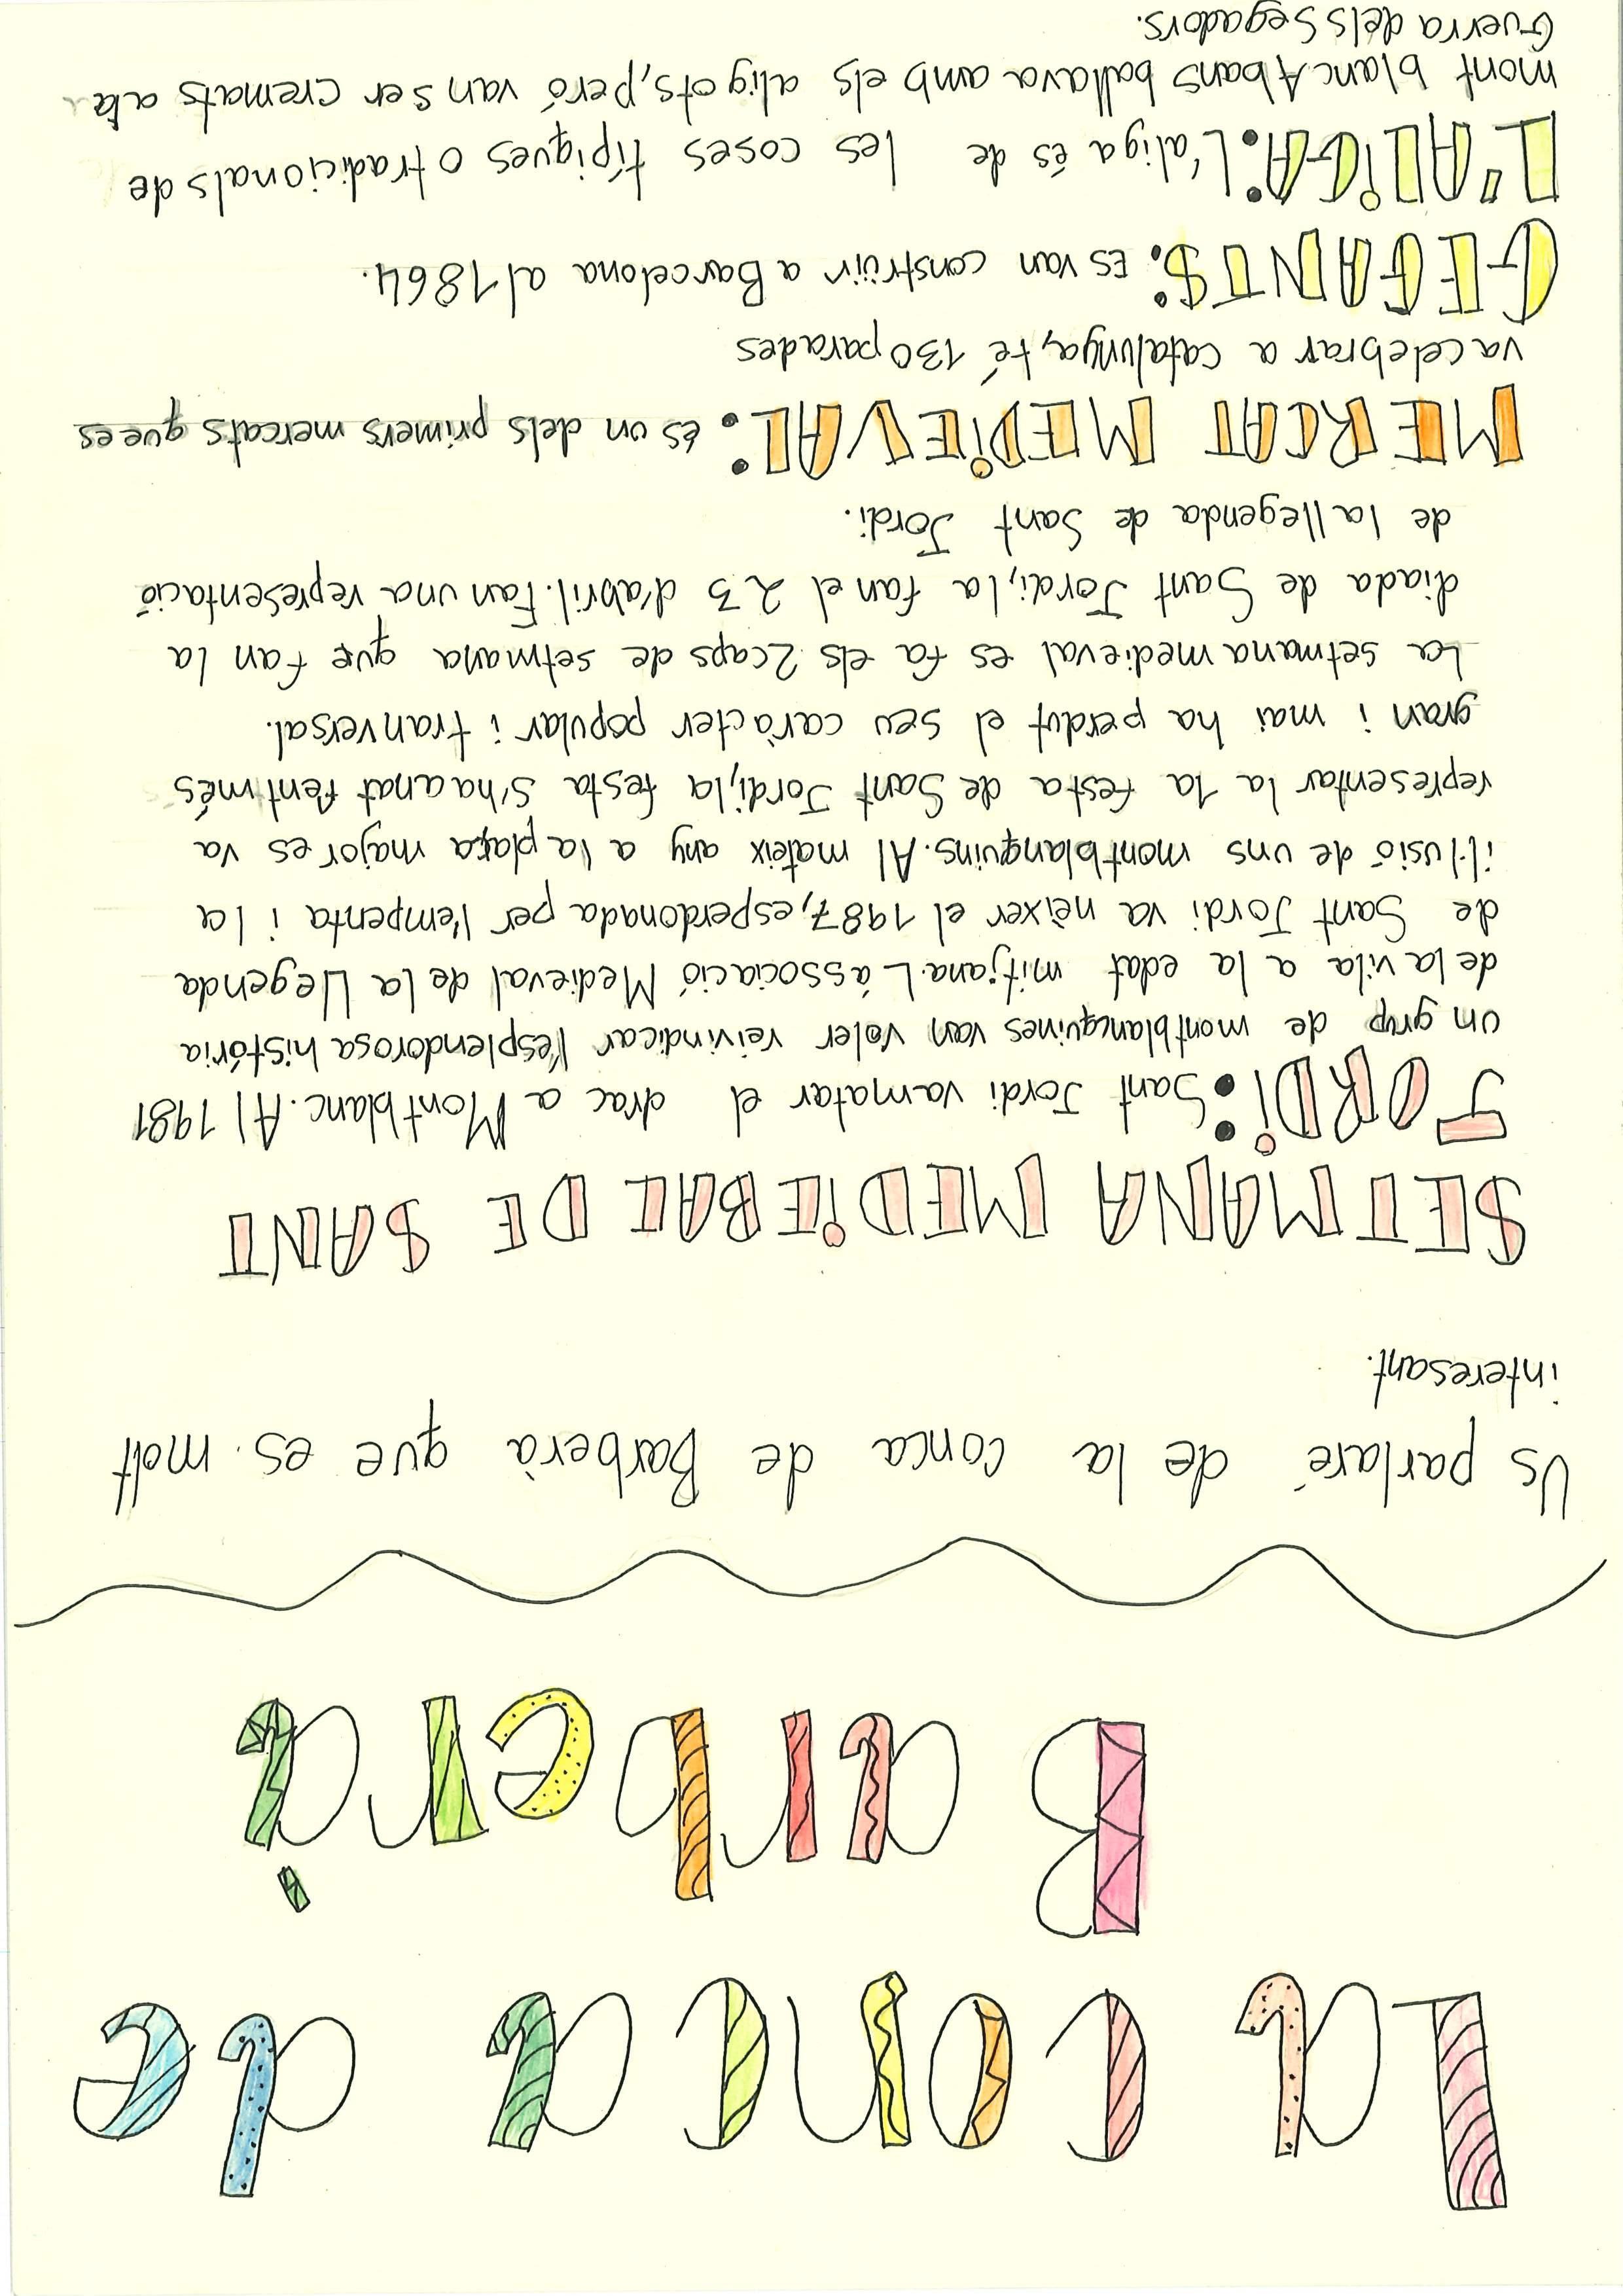 La conca de
Barberà
Us parlaré de la conca de Barberà que es molt
interesant.
SETMANA MEDiEBAL DE SANT
JORDi: Sant Jordi va matar el drac a Montblanc. Al 1981
un grup de montblanquines van voler reivindicar l'esplendorosa història
de la vila a la edat mitjana. L'associació Medieval de la Llegenda
de Sant Jordi va nèixer el 1987, esperdonada per l'empenta i la
il·lusió de uns montblanquins. Al mateix any a la plaça major es va
representar la 1a festa de Sant Jordi, la festa s'ha anat fent més
gran i mai ha perdut el seu caràcter popular i tranversal.
La setmana medieval es fa els 2 caps de setmana que fan la
diada de Sant Jordi, la fan el 23 d'abril. Fan una representació
de la llegenda de Sant Jordi.
MERCAT MEDiEVAL: és un dels primers mercats que es
va celebrar a catalunya, té 130 parades
GEGANTS: Es van construir a Barcelona al 1864.
L'ALiGA: L'aliga és de les coses típiques o tradicionals de
mont blanc Abans ballava amb els aligots, peró van ser cremats a la
Guerra dels Segadors.